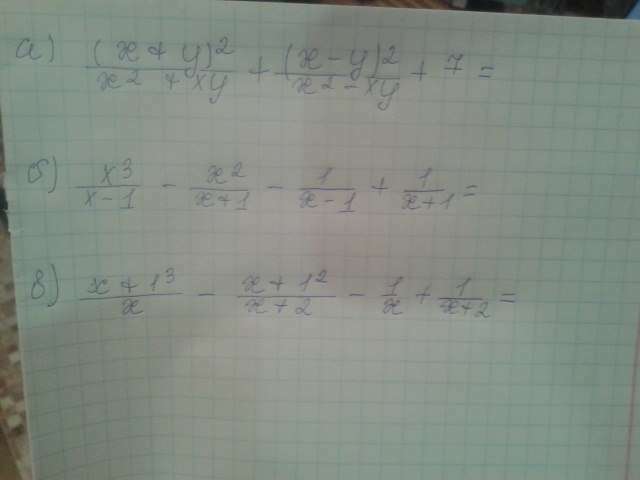 а) (x + y)² / (x² + xy) + (x - y)² / (x² - xy) + 7 =
б) x³ / (x - 1) - x² / (x + 1) - 1 / (x - 1) + 1 / (x + 1) =
в) (x + 1³) / x - (x + 1²) / (x + 2) - 1 / x + 1 / (x + 2) =